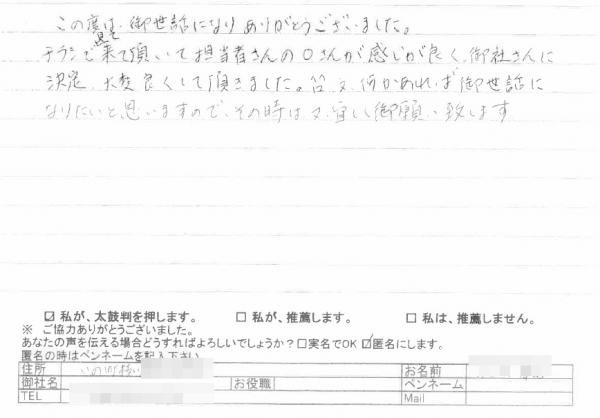 この度は、御世話になりありがとうございました。
チラシで見て来て頂いて担当者さんのOさんが感じが良く、御社さんに
決定、大変良くして頂きました。又、何かあれば御世話に
なりたいと思いますので、その時は又、宜しく御願い致します
☑ 私が、太鼓判を押します。 □ 私が、推薦します。 □ 私は、推薦しません。
※ ご協力ありがとうございました。
あなたの声を伝える場合どうすればよろしいでしょうか？□実名でOK ☑匿名にします。
匿名の時はペンネームを記入下さい
住所 お名前
御社名 お役職 ペンネーム
TEL Mail